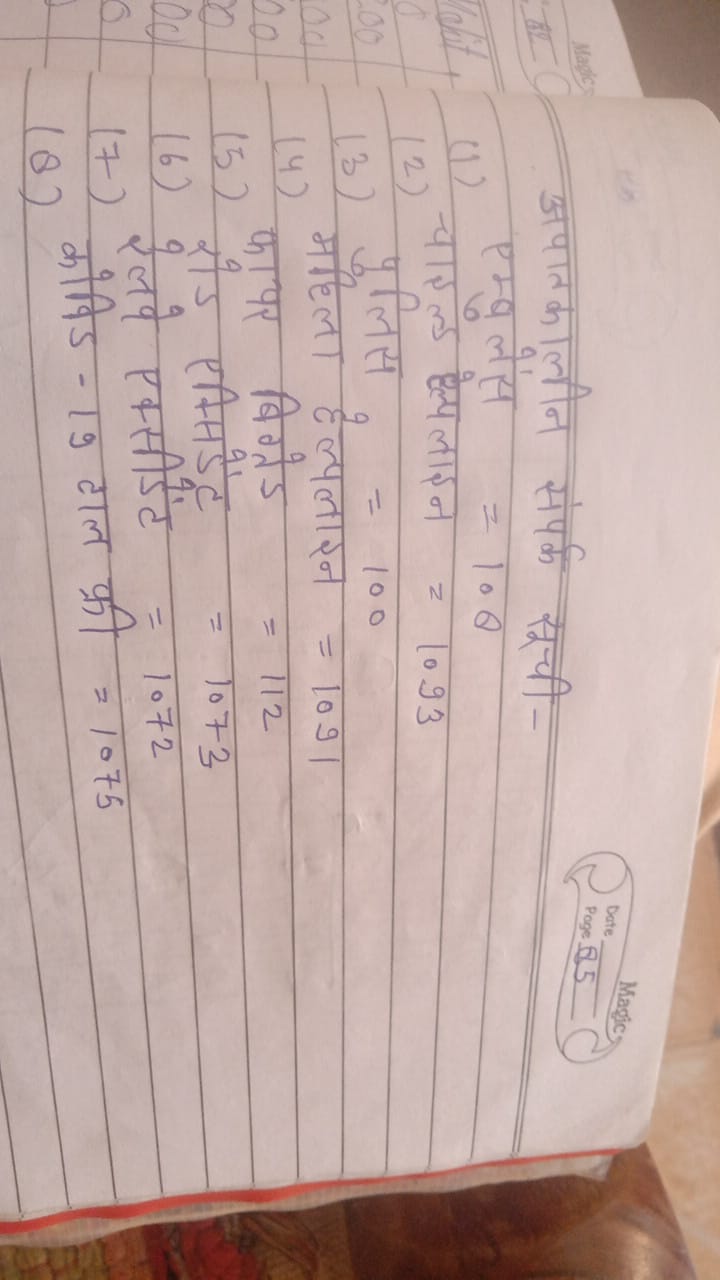 Magic
Date
Page 85
अपातकालीन संपर्क सूची -
(1) एम्बुलेंस = 108
(2) चाइल्ड हेल्पलाइन = 1093
(3) पुलिस = 100
(4) महिला हेल्पलाइन = 1091
(5) फायर बिग्रेड = 112
(6) रोड एक्सिडेंट = 1073
(7) रेलवे एक्सीडेंट = 1072
(8) कोविड - 19 टाल फ्री = 1075
Magic
Mohit
200